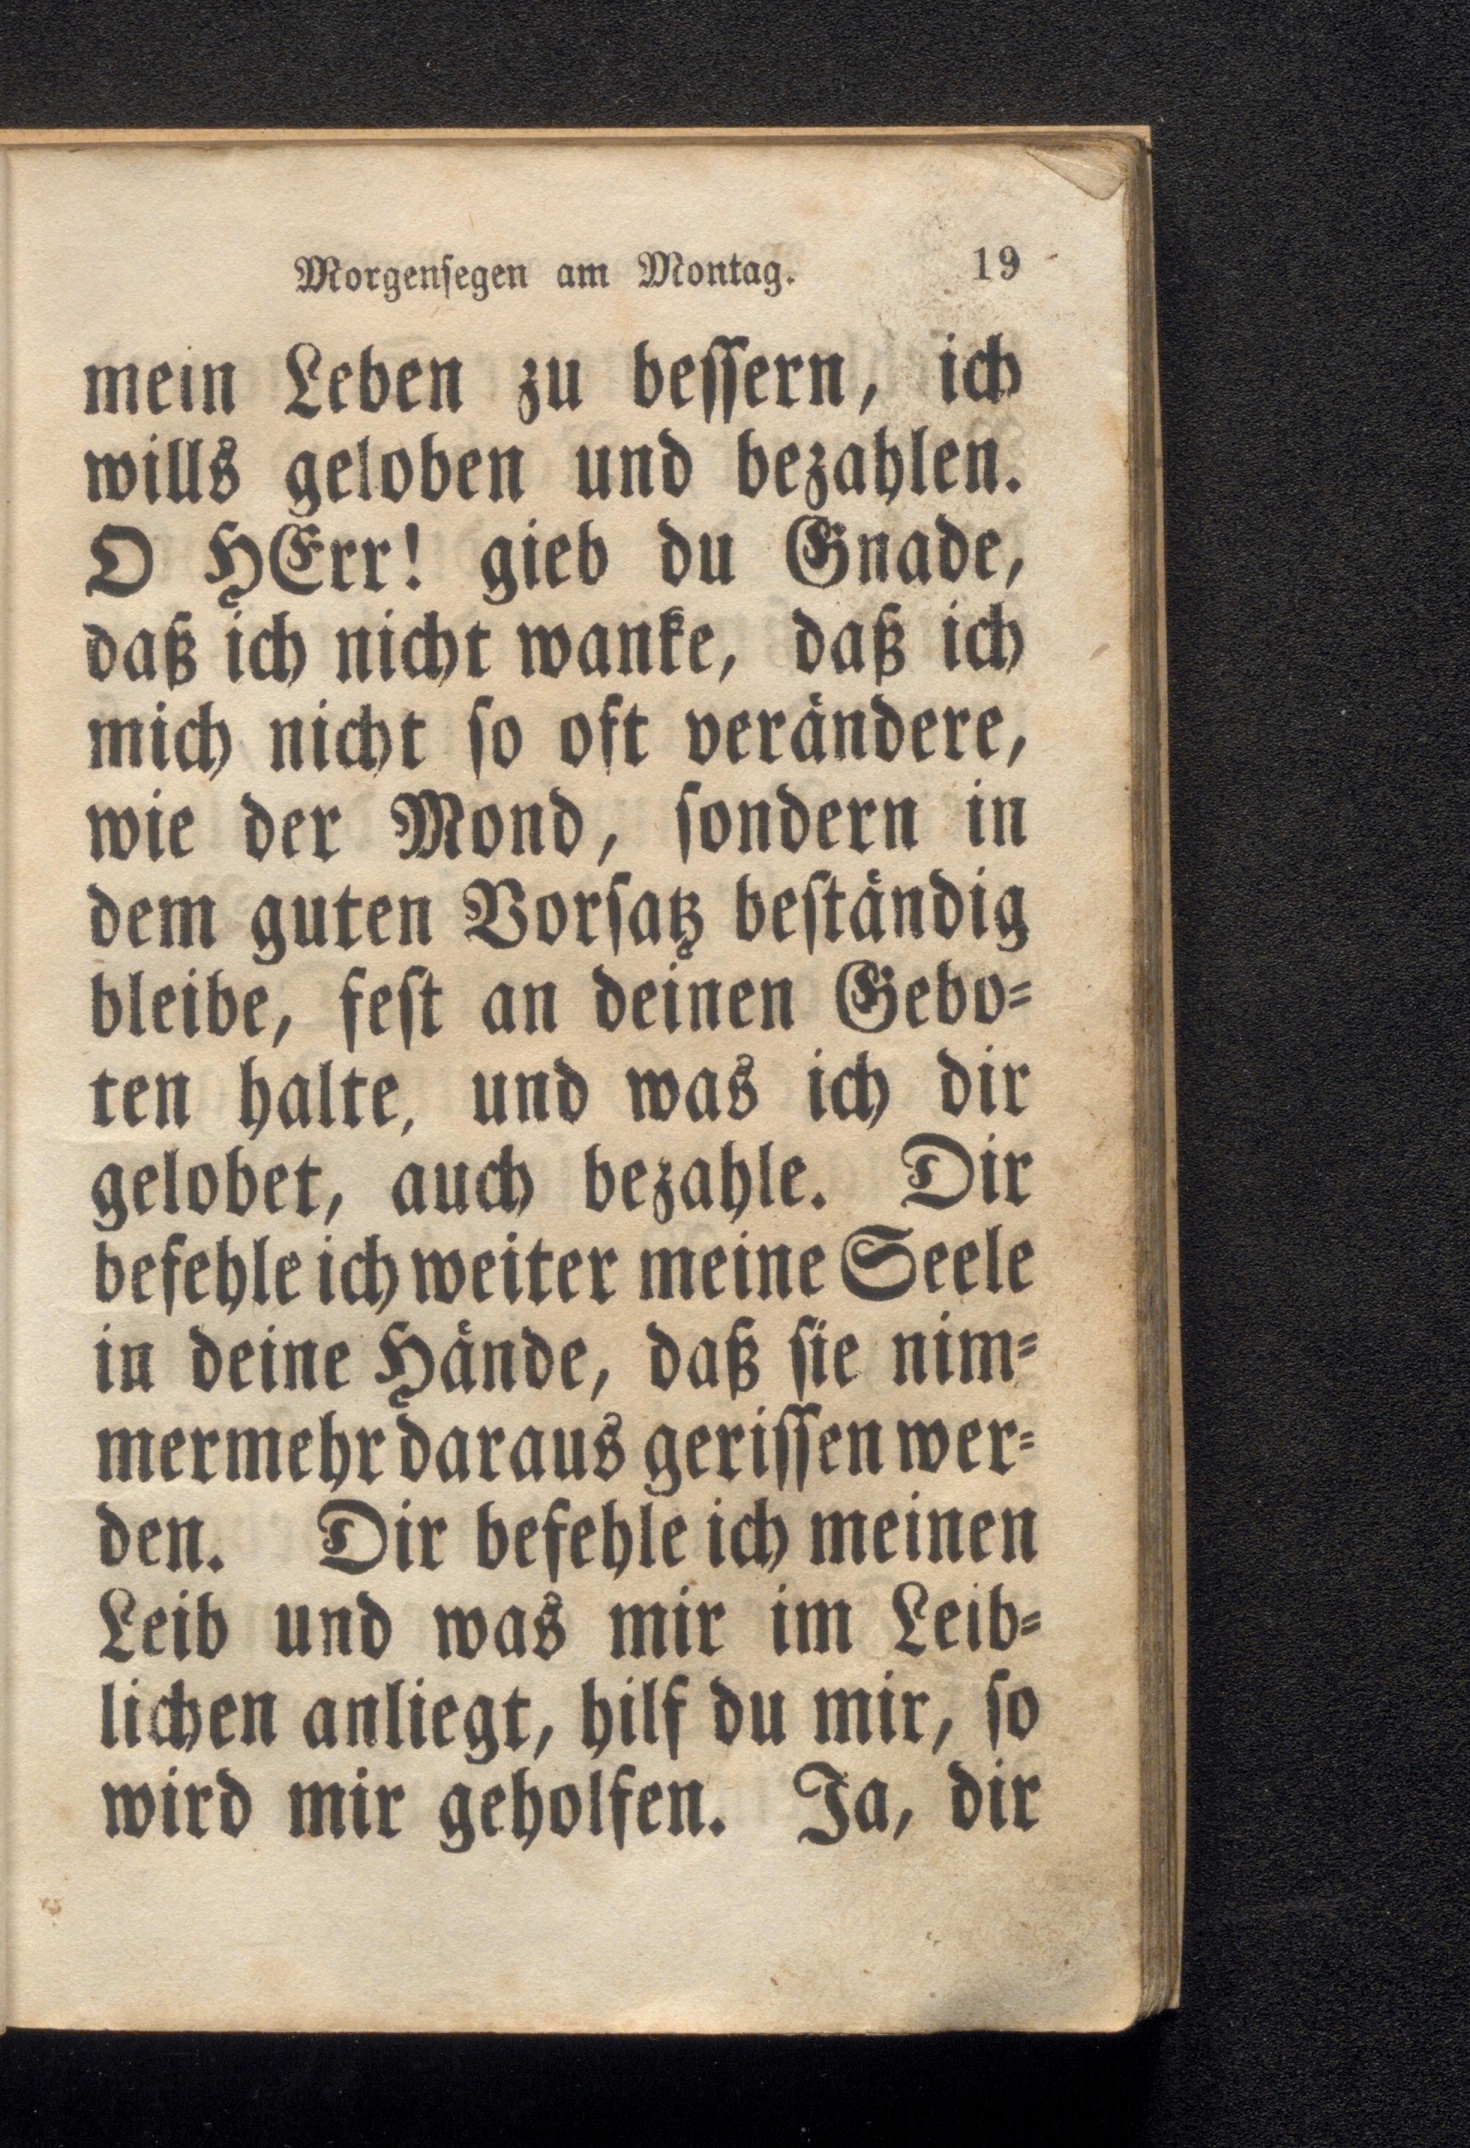 Morgenſegen am Montag. 19
mein Leben zu beſſern, ich
wills geloben und bezahlen.
O HErr! gieb du Gnade,
daß ich nicht wanke, daß ich
mich nicht ſo oft verändere,
wie der Mond, ſondern in
dem guten Vorſatz beſtändig
bleibe, feſt an deinen Gebo⸗
ten halte, und was ich dir
gelobet, auch bezahle. Dir
befehle ich weiter meine Seele
in deine Hände, daß ſie nim⸗
mermehr daraus geriſſen wer⸗
den. Dir befehle ich meinen
Leib und was mir im Leib⸗
lichen anliegt, hilf du mir, ſo
wird mir geholfen. Ja, dir